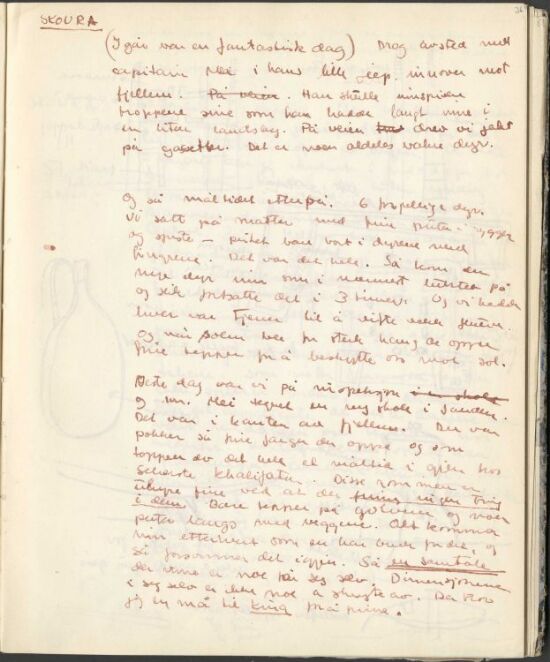 SKOURA
(I går var en fantastisk dag) Drog avsted med
capitain Mei i hans lille jeep, innover mot
fjellene På veien. Han skulle inspisere
troppene sine som han hadde langt inne i
en liten landsby. På veien drev vi jakt
på gaseller. Det er noen aldeles vakre dyr.
Og så måltidet etterpå. 6 dyr.
Vi satt på matter med fine puter i ryggen
og spiste – bare bort i dyrene med
fingrene. Det var det hele. Så kom en
nye dyr inn som i
og slik fortsatte det i 3 timer. Og vi hadde
hver vår tjener til å vifte vekk fluene.
Og når solen ble for sterk hang de opp en
fine tepper for å beskytte oss mot sol.
Neste dag var vi på inspeksjon i en skole
og Mei tegnet en ny skole i sanden.
Det var i kanten av fjellene. Der var
så fine farger der oppe og som
toppen av det hele et måltid i igjen hos
Khalifaten. Disse rommene er
fine ved at der finns ingen ting
i dem. Bare tepper på gulvene og noen
puter langs med veggene. Alt kommer
inn etterhvert som en har bruk for det, og
så forsvinner det igjen. Så en samtale
der inne er noe for seg selv. Dimensjonene
i seg selv er ikke noe å skryte av. Der tror
jeg en må til Kina for å finne.